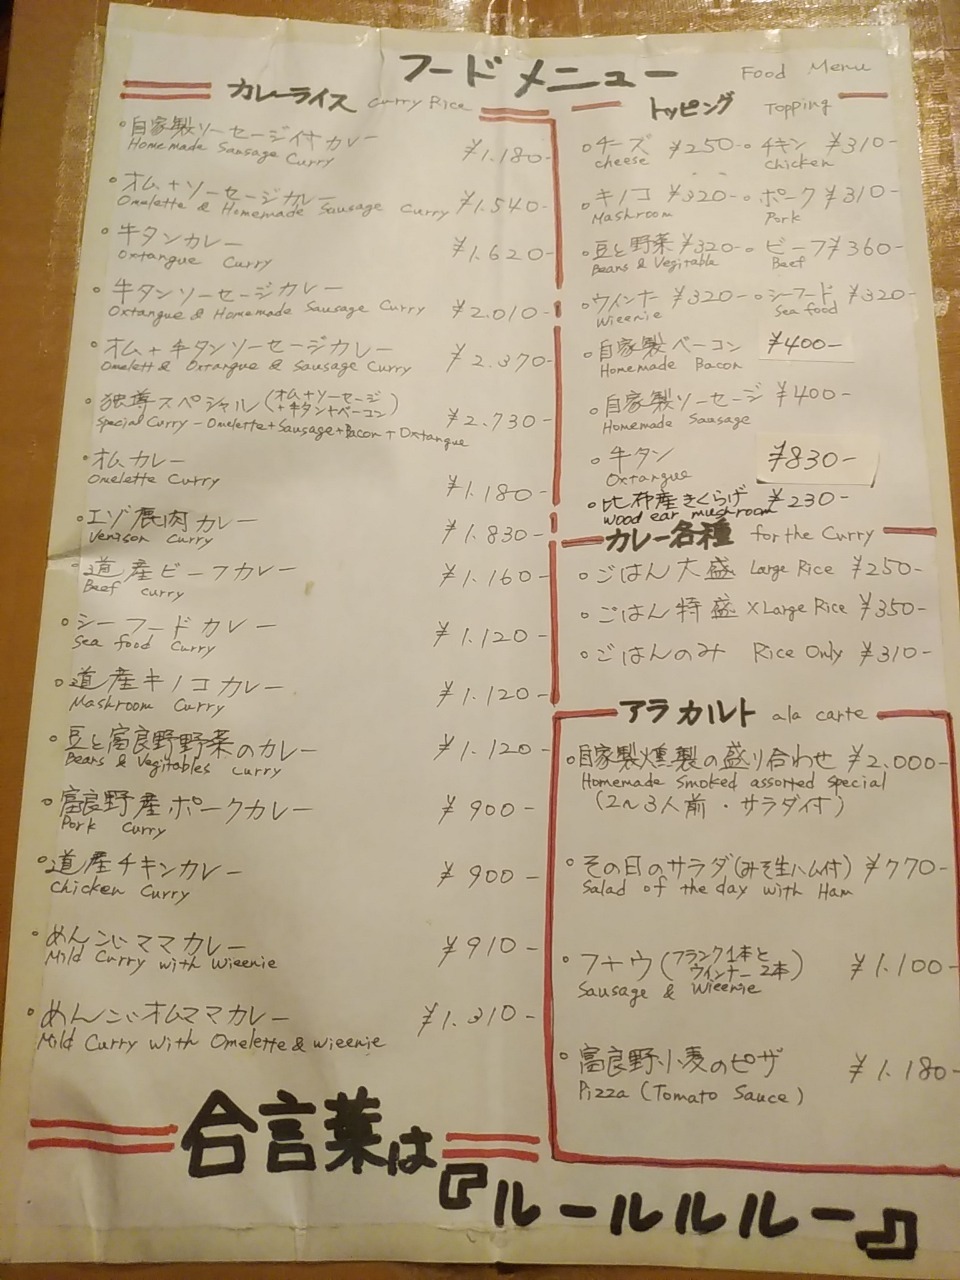 フードメニュー Food Menu
カレーライス Curry Rice
・自家製ソーセージ付カレー ¥1.180-
Homemade Sausage Curry
・オム+ソーセージカレー ¥1.540-
Omelette & Homemade Sausage Curry
・牛タンカレー ¥1.620-
Oxtangue Curry
・牛タンソーセージカレー ¥2.010-
Oxtangue & Homemade Sausage Curry
・オム+牛タンソーセージカレー ¥2.370-
Omelett & Oxtangue & Sausage Curry
・独尊スペシャル(オム+ソーセージ+牛タン+ベーコン) ¥2.730-
Special Curry - Omelette+Sausage+Bacon+Oxtangue
・オムカレー ¥1.180-
Omelette Curry
・エゾ鹿肉カレー ¥1.830-
Venison Curry
・道産ビーフカレー ¥1.160-
Beef Curry
・シーフードカレー ¥1.120-
Sea food Curry
・道産キノコカレー ¥1.120-
Mashroom Curry
・豆と富良野野菜のカレー ¥1.120-
Beans & Vegitables Curry
・富良野産ポークカレー ¥900-
Pork Curry
・道産チキンカレー ¥900-
Chicken Curry
・めんこいママカレー ¥910-
Mild Curry with Wieenie
・めんこいオムママカレー ¥1.310-
Mild Curry with Omelette & wieenie
トッピング Topping
・チーズ ¥250- ・チキン ¥310-
cheese Chicken
・キノコ ¥320- ・ポーク ¥310-
Mashroom Pork
・豆と野菜 ¥320- ・ビーフ ¥360-
Beans & Vegitable Beef
・ウインナー ¥320- ・シーフード ¥320-
Wieenie Sea food
・自家製ベーコン ¥400-
Homemade Bacon
・自家製ソーセージ ¥400-
Homemade Sausage
・牛タン ¥830-
Oxtangue
・比布産きくらげ ¥230-
wood ear mushroom
カレー各種 for the Curry
・ごはん大盛 Large Rice ¥250-
・ごはん特盛 XLarge Rice ¥350-
・ごはんのみ Rice Only ¥310-
アラカルト ala carte
・自家製燻製の盛り合わせ ¥2.000-
Homemade Smoked assorted special
(2〜3人前・サラダ付)
・その日のサラダ(みそ生ハム付) ¥770-
Salad of the day with Ham
・フ+ウ(フランク1本とウインナー2本) ¥1.100-
Sausage & Wieenie
・富良野小麦のピザ ¥1.180-
Pizza (Tomato Sauce)
合言葉は
『ルールルルー』